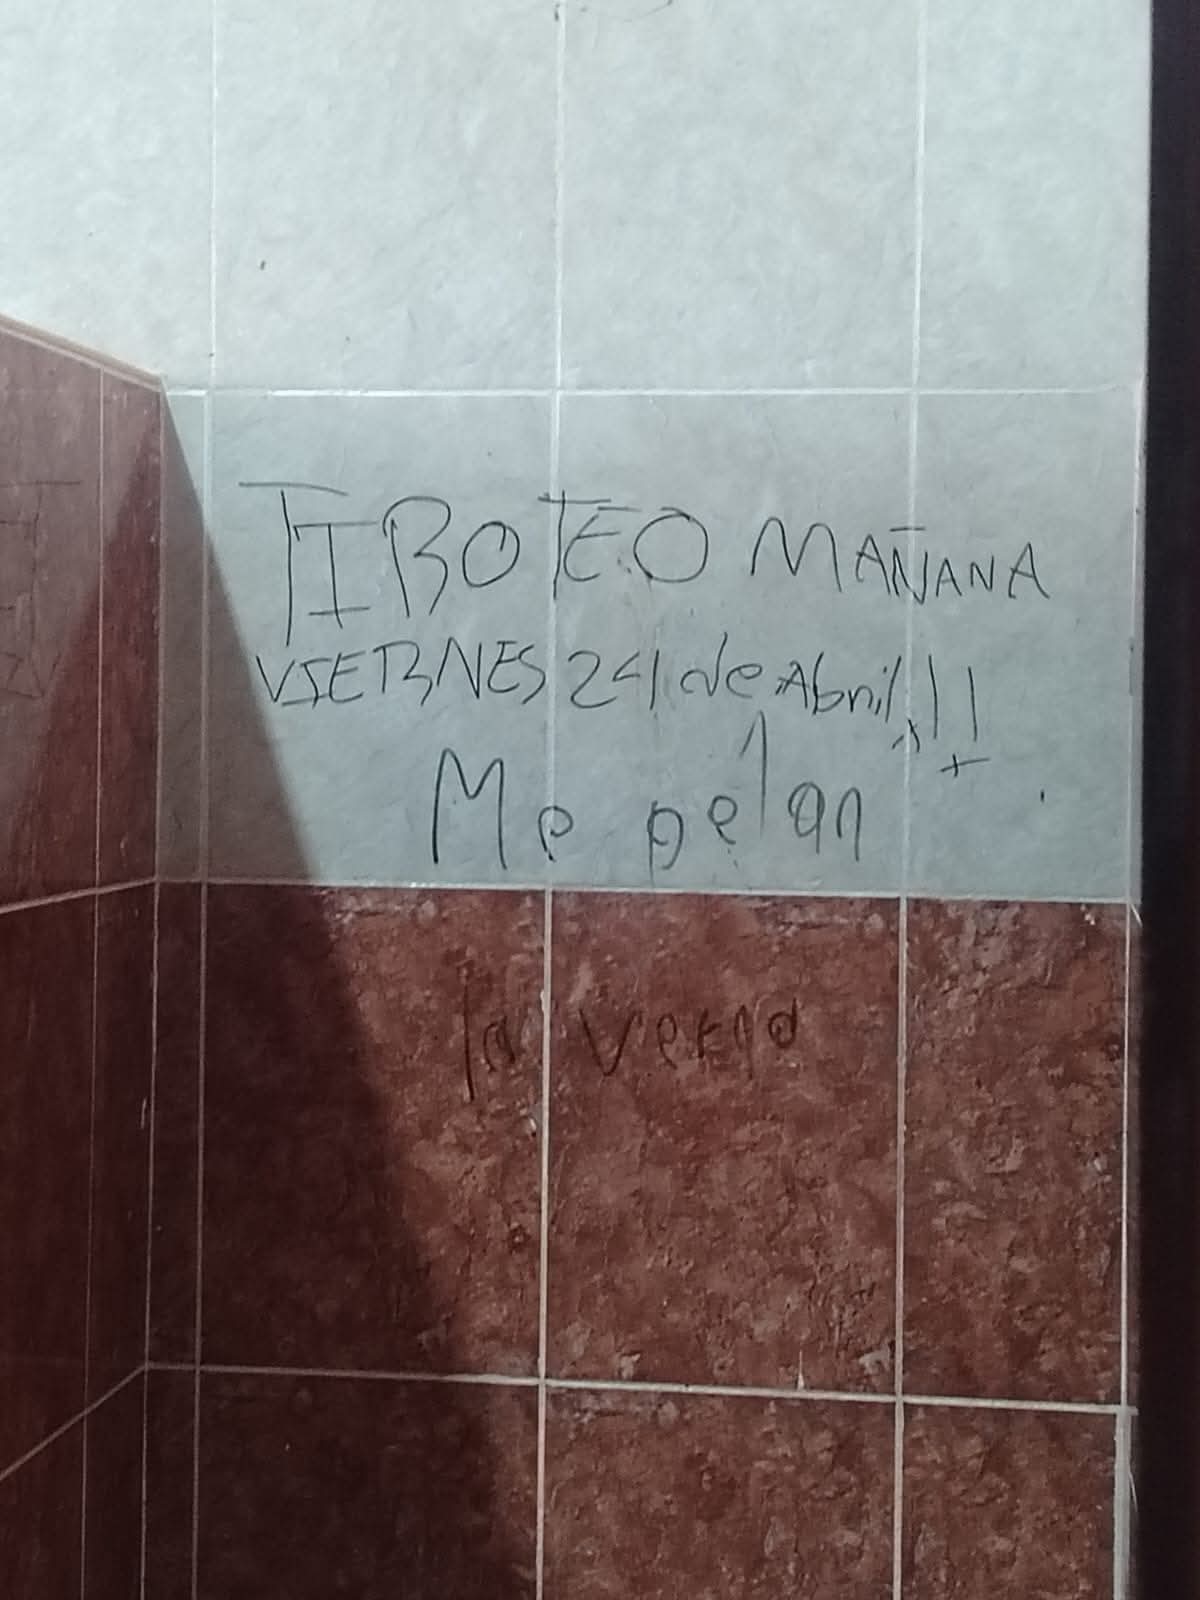 TIROTEO MAÑANA
VIERNES 24 de Abril!!
Me pelan
la verga